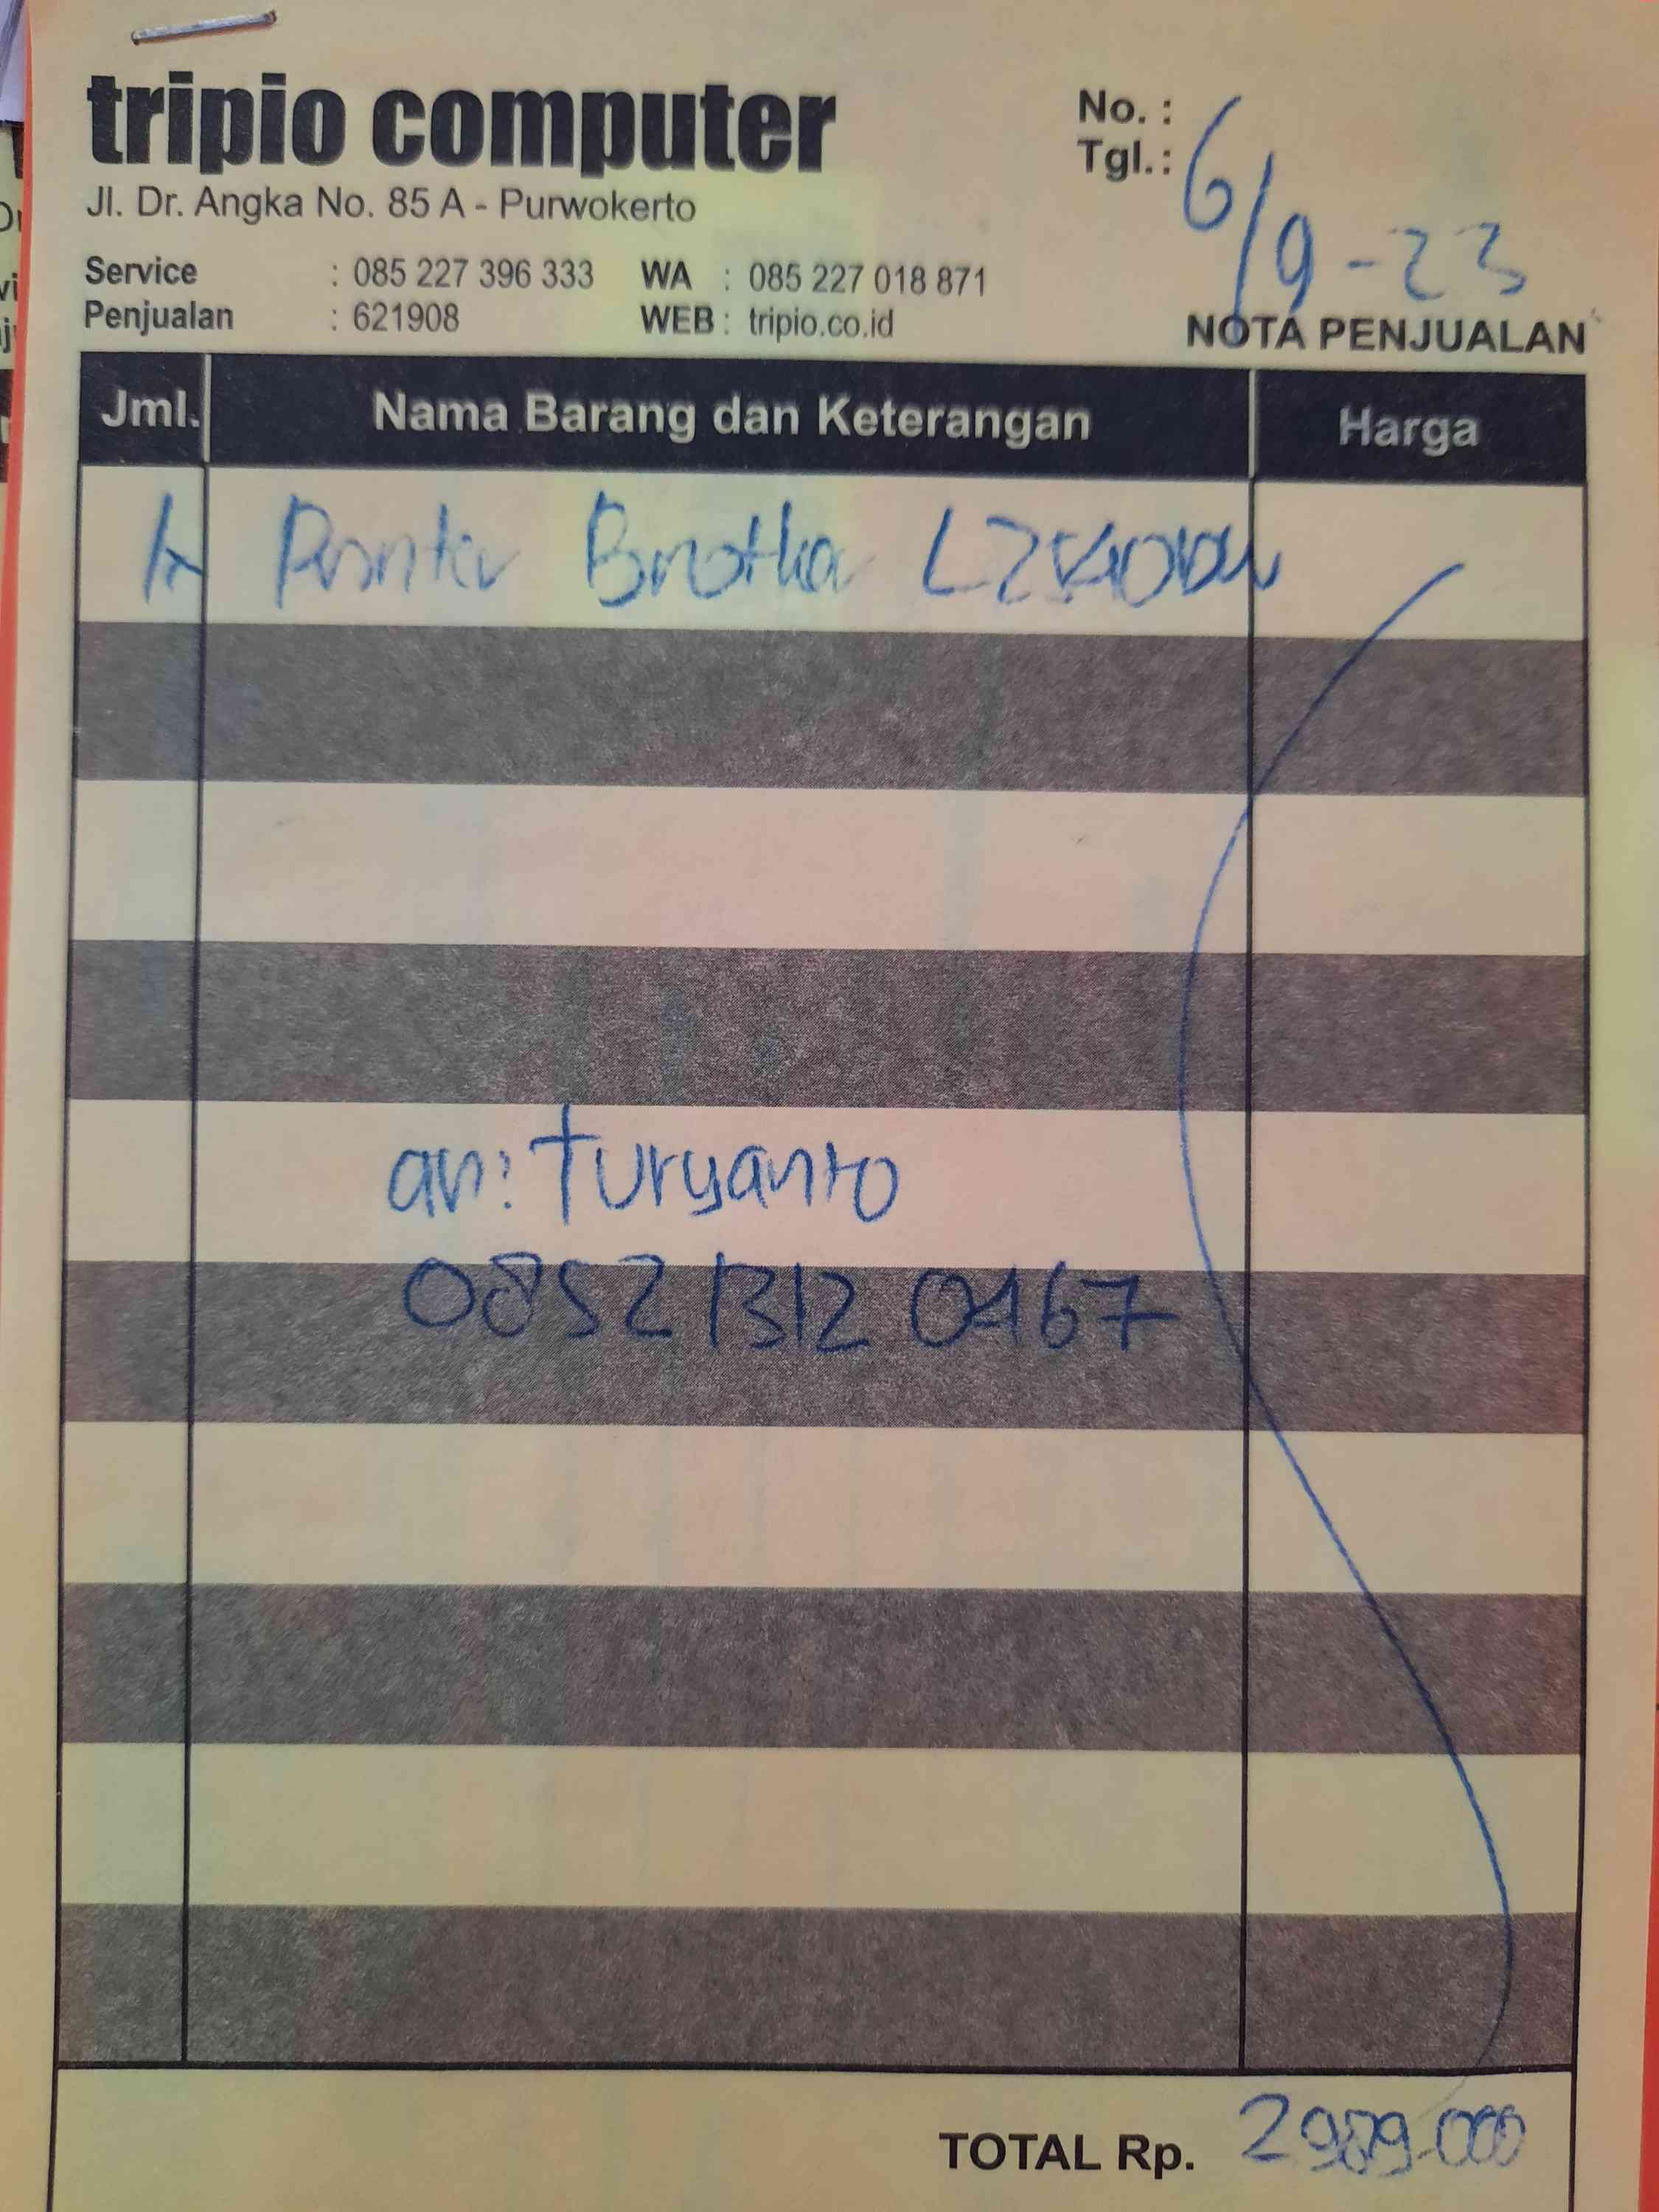 tripio computer
Jl. Dr. Angka No. 85 A - Purwokerto
Service : 085 227 396 333 WA : 085 227 018 871
Penjualan : 621908 WEB : tripio.co.id
No. :
Tgl. : 6/9-23
NOTA PENJUALAN
Jml. Nama Barang dan Keterangan Harga
1 Printer Brother
an: Turyanto
0852 1312 0467
TOTAL Rp. 2989.000